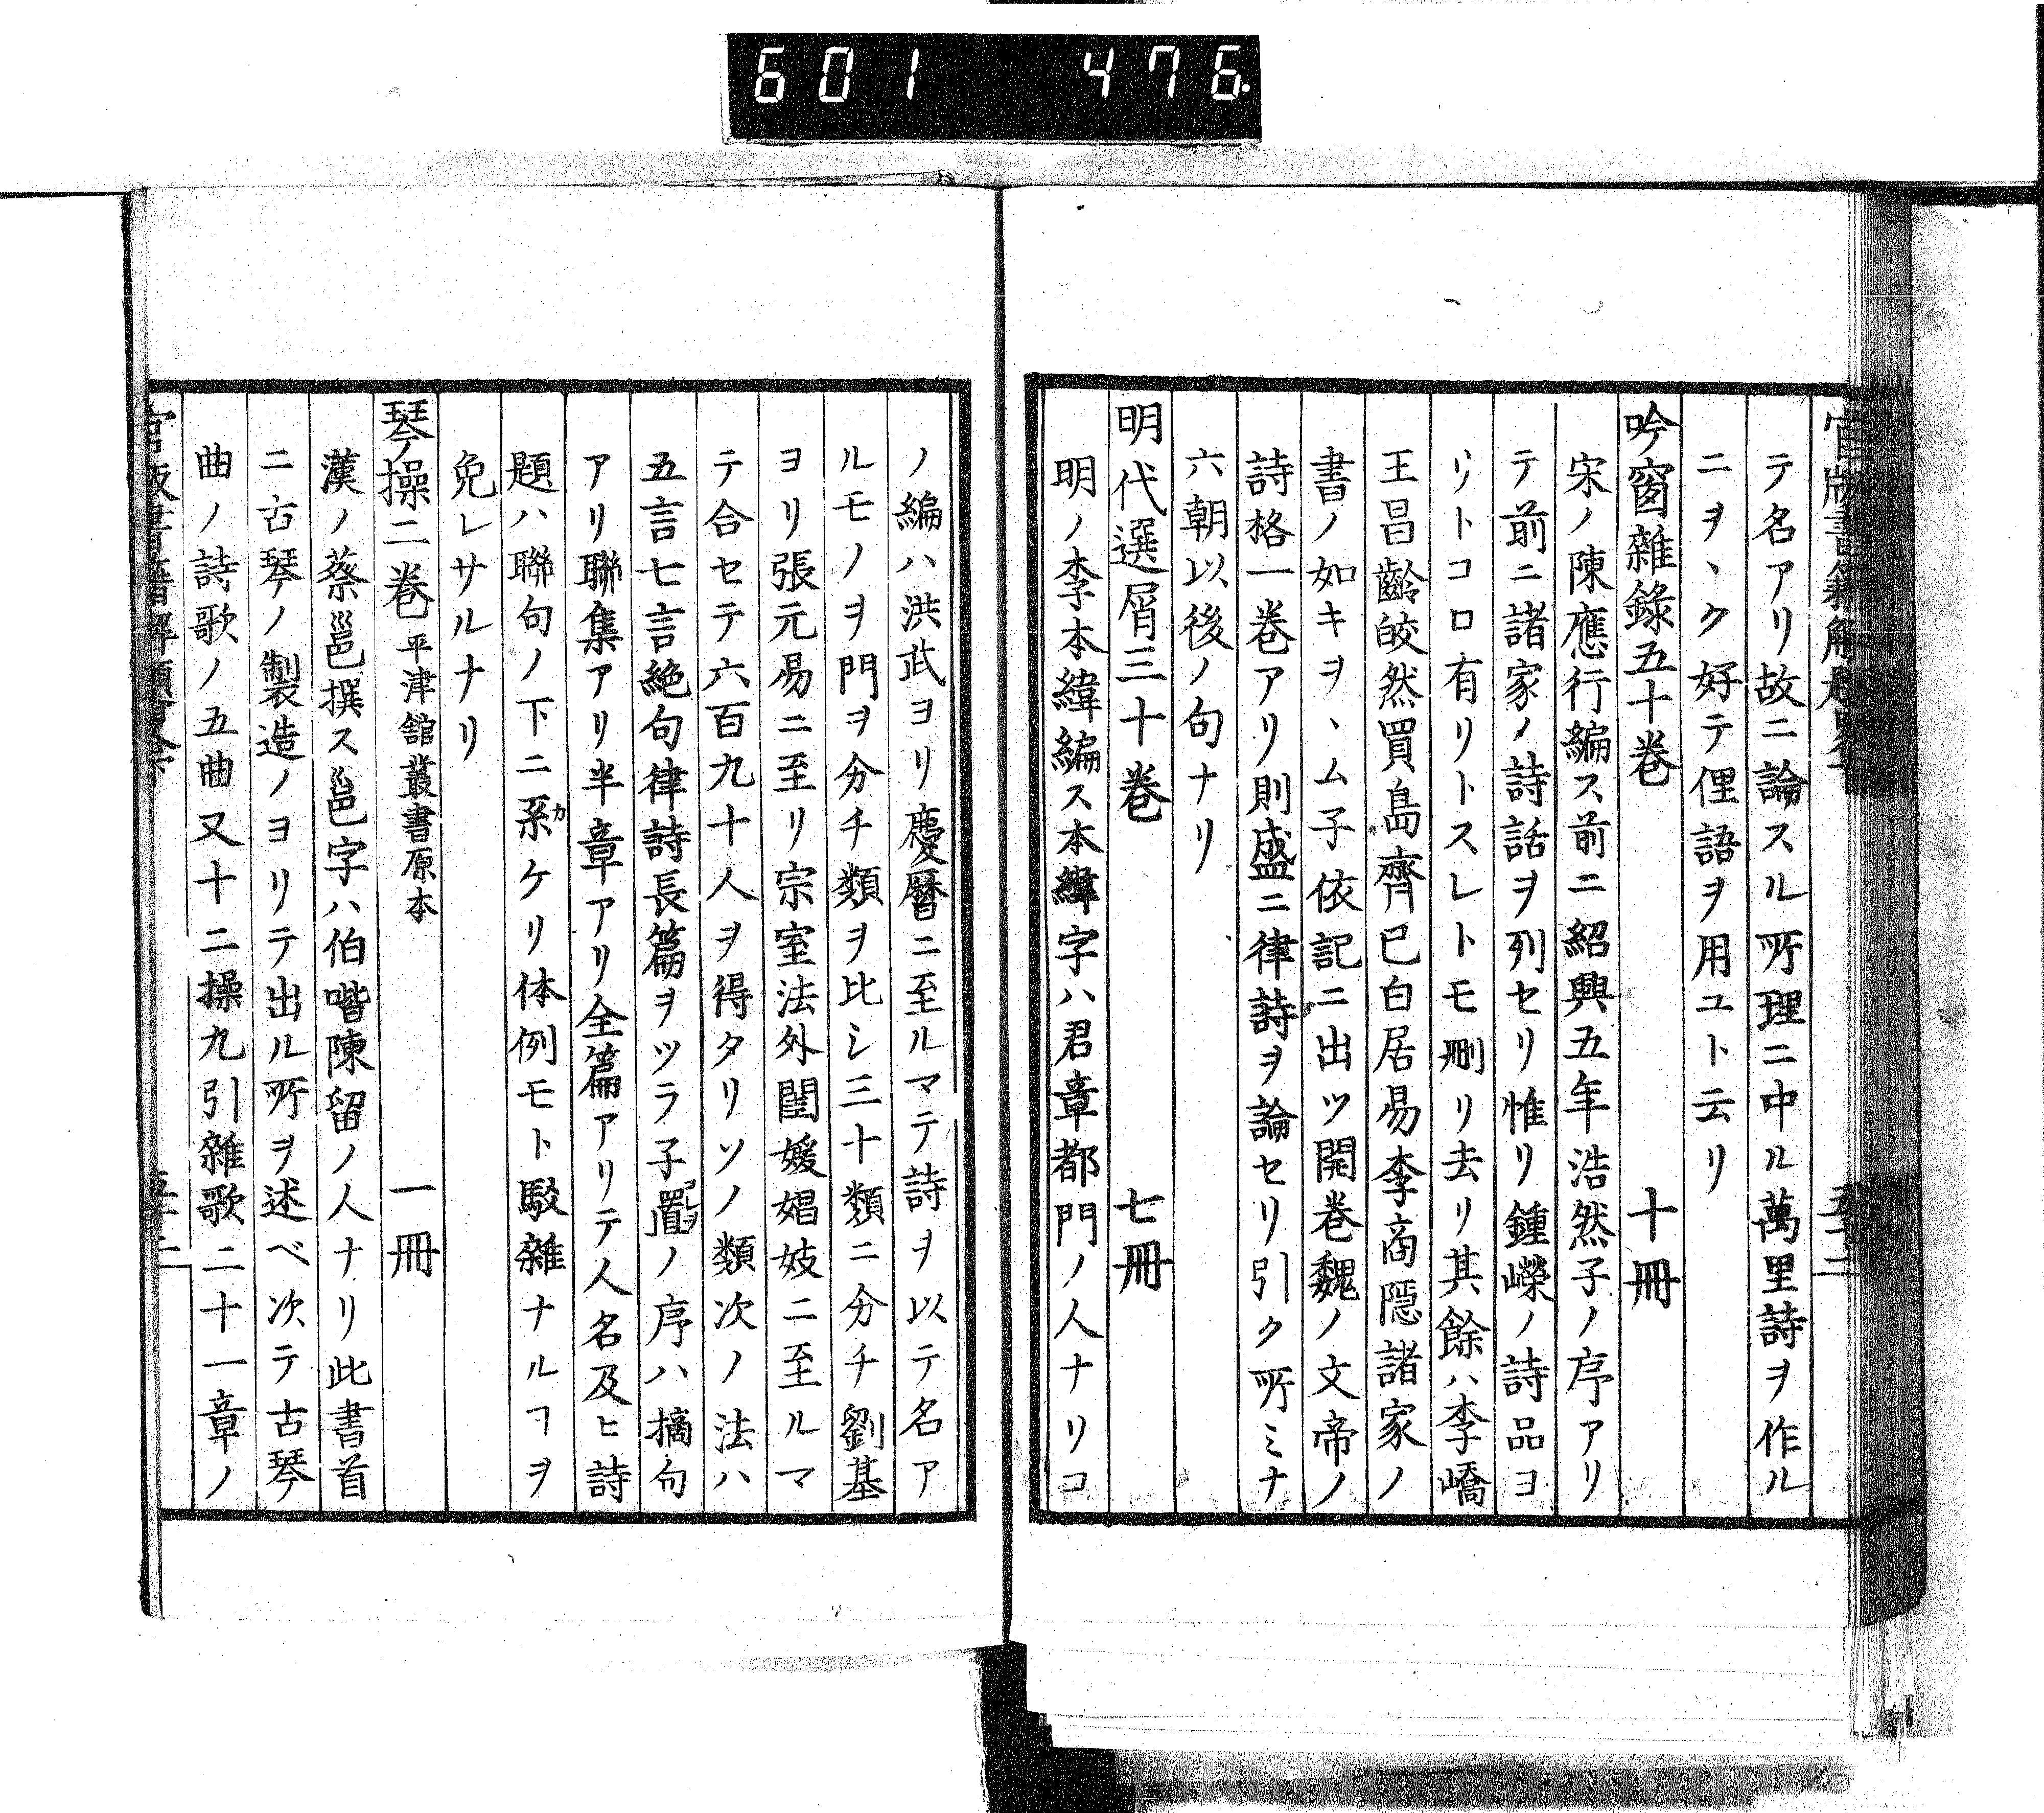 601 476.
テ名アリ故ニ論スル所理ニ中ル萬里詩ヲ作ル
ニヲヽク好テ俚語ヲ用ユト云リ
吟窗雜錄五十卷 十冊
宋ノ陳應行編ス前ニ紹興五年浩然子ノ序アリ
テ前ニ諸家ノ詩話ヲ列セリ惟リ鍾嶸ノ詩品ヨ
リトコロ有リトスレトモ刪リ去リ其餘ハ李嶠
王昌齡皎然買島齊已白居易李商隱諸家ノ
書ノ如キヲヽム子依記ニ出ツ開卷魏ノ文帝ノ
詩格一卷アリ則盛ニ律詩ヲ論セリ引ク所ミナ
六朝以後ノ句ナリ
明代選屑三十卷 七冊
明ノ李本緯編ス本緯字ハ君章都門ノ人ナリコ
ノ編ハ洪武ヨリ慶曆ニ至ルマテ詩ヲ以テ名ア
ルモノヲ門ヲ分チ類ヲ比シ三十類ニ分チ劉基
ヨリ張元易ニ至リ宗室法外閨媛娼妓ニ至ルマ
テ合セテ六百九十人ヲ得タリソノ類次ノ法ハ
五言七言絶句律詩長篇ヲツラ子置ノ序ハ摘句
アリ聯集アリ半章アリ全篇アリテ人名及ヒ詩
題ハ聯句ノ下ニ系カケリ体例モト駁雜ナルヿヲ
免レサルナリ
琴操二卷 平津館叢書原本 一冊
漢ノ蔡邕撰ス邕字ハ伯喈陳留ノ人ナリ此書首
ニ古琴ノ製造ノヨリテ出ル所ヲ述ベ次テ古琴
曲ノ詩歌ノ五曲又十二操九引雜歌二十一章ノ